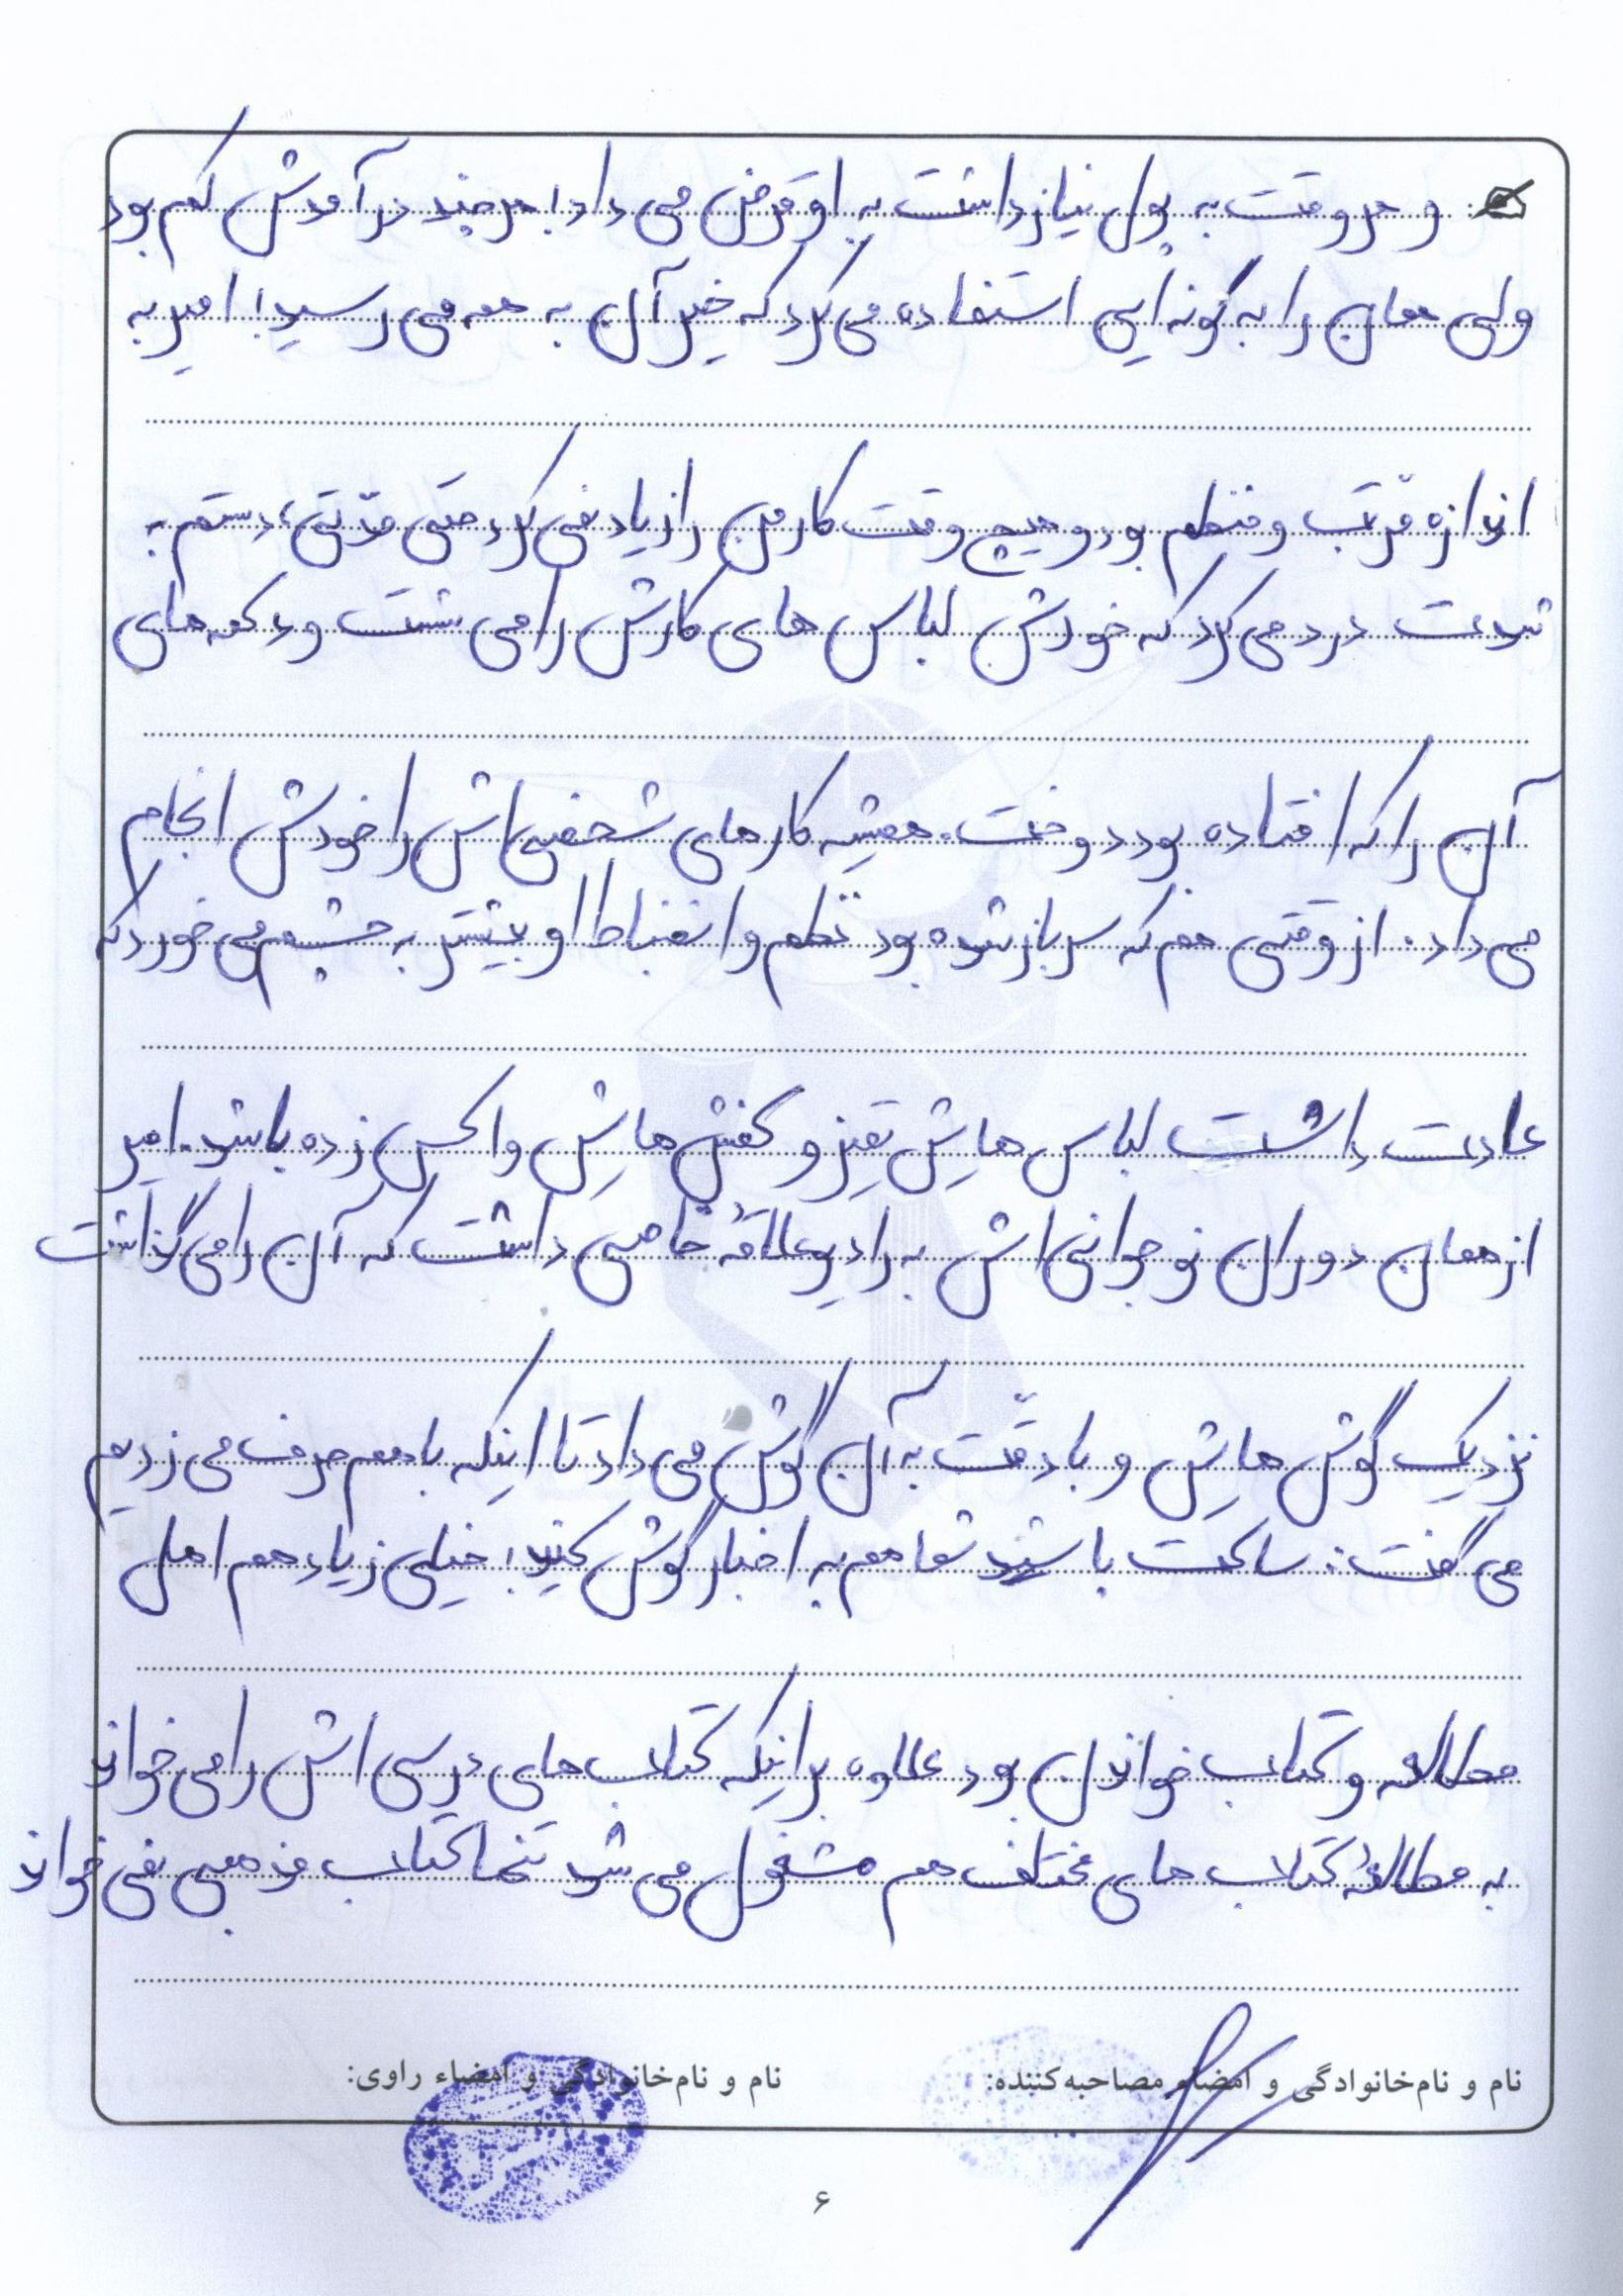 و هر وقت به پول نیاز داشت به او قرض می داد! هر چند درآمدش کم بود
ولی همان را به گونه ایی استفاده می کرد که خیر آن به همه می رسید! امیر به
اندازه مرتّب و منظم بود و هیچ وقت کار من را زیاد نمی کرد، حتی مدّتی، دستم به
شدت درد می کرد که خودش لباس های کارش را می شست و دکمه های
آن را که افتاده بود دوخت. همیشه کارهای شخصی اش را خودش انجام
می داد. از وقتی هم که سرباز شده بود نظم و انضباط او بیشتر به چشم می خورد که
عادت داشت لباس هایش تمیز و کفش هایش واکس زده باشد. امیر
از همان دوران نوجوانی اش به رادیو علاقهٔ خاصی داشت که آن را می گذاشت
نزدیک گوش هایش و با دقّت به آن گوش می داد تا اینکه با هم حرف می زدیم
می گفت: ساکت باشید شما هم به اخبار گوش کنید! خیلی زیاد هم اهل
مطالعه و کتاب خواندن بود علاوه بر اینکه کتاب های درسی اش را می خواند
به مطالعهٔ کتاب های مختلف هم مشغول می شد تنها کتاب مذهبی نمی خواند
نام و نام‌خانوادگی و امضاء مصاحبه‌کننده:
نام و نام‌خانوادگی و امضاء راوی:
۶